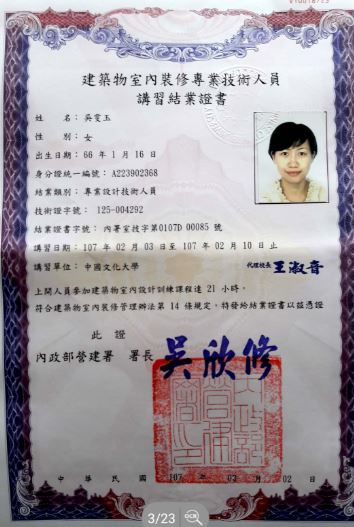 建築物室內裝修專業技術人員
講習結業證書
姓 名：吳雯玉
性 別：女
出生日期：66 年 1 月 16 日
身分證統一編號：A223902368
結業類別：專業設計技術人員
技術證字號： 125-004292
結業證書字號： 內署室技字第0107D 00085 號
講習日期：107 年 02 月 03 日至 107 年 02 月 10 日止
講習單位：中國文化大學
代理校長 王淑音
上開人員參加建築物室內設計訓練課程達 21 小時，
符合建築物室內裝修管理辦法第 14 條規定，特發給結業證書以茲憑證
此 證
內政部營建署 署長 吳欣修
中 華 民 國 107 年 03 月 02 日
3/23
OCR